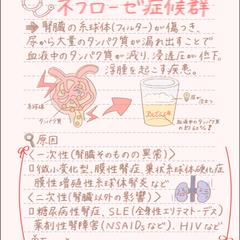 ネフローゼ症候群
➡腎臓の糸球体(フィルター)が傷つき、
尿から大量のタンパク質が漏れ出すことで
血液中のタンパク質が減り、浸透圧が低下。
浮腫を起こす疾患。
糸球体
タンパク質
原因
〈一次性(腎臓そのものの異常)〉
□微小変化型、膜性腎症、巣状糸球体硬化症
膜性増殖性糸球体腎炎など
〈二次性(腎臓以外の影響)〉
□糖尿病性腎症、SLE(全身性エリテマトーデス)
薬剤性腎障害(NSAIDsなど)、HIVなど